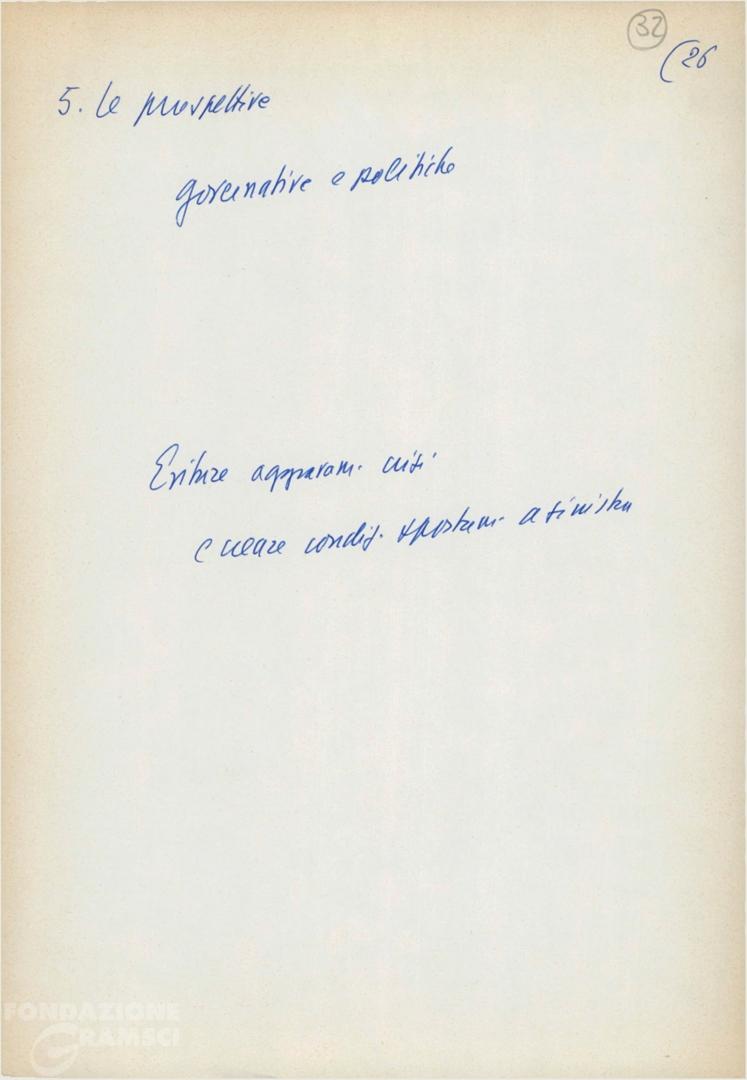 32
(26
5. Le prospettive
governative e politiche
Evitare aggravam. crisi
e creare condiz. spostam. a sinistra
FONDAZIONE
GRAMSCI